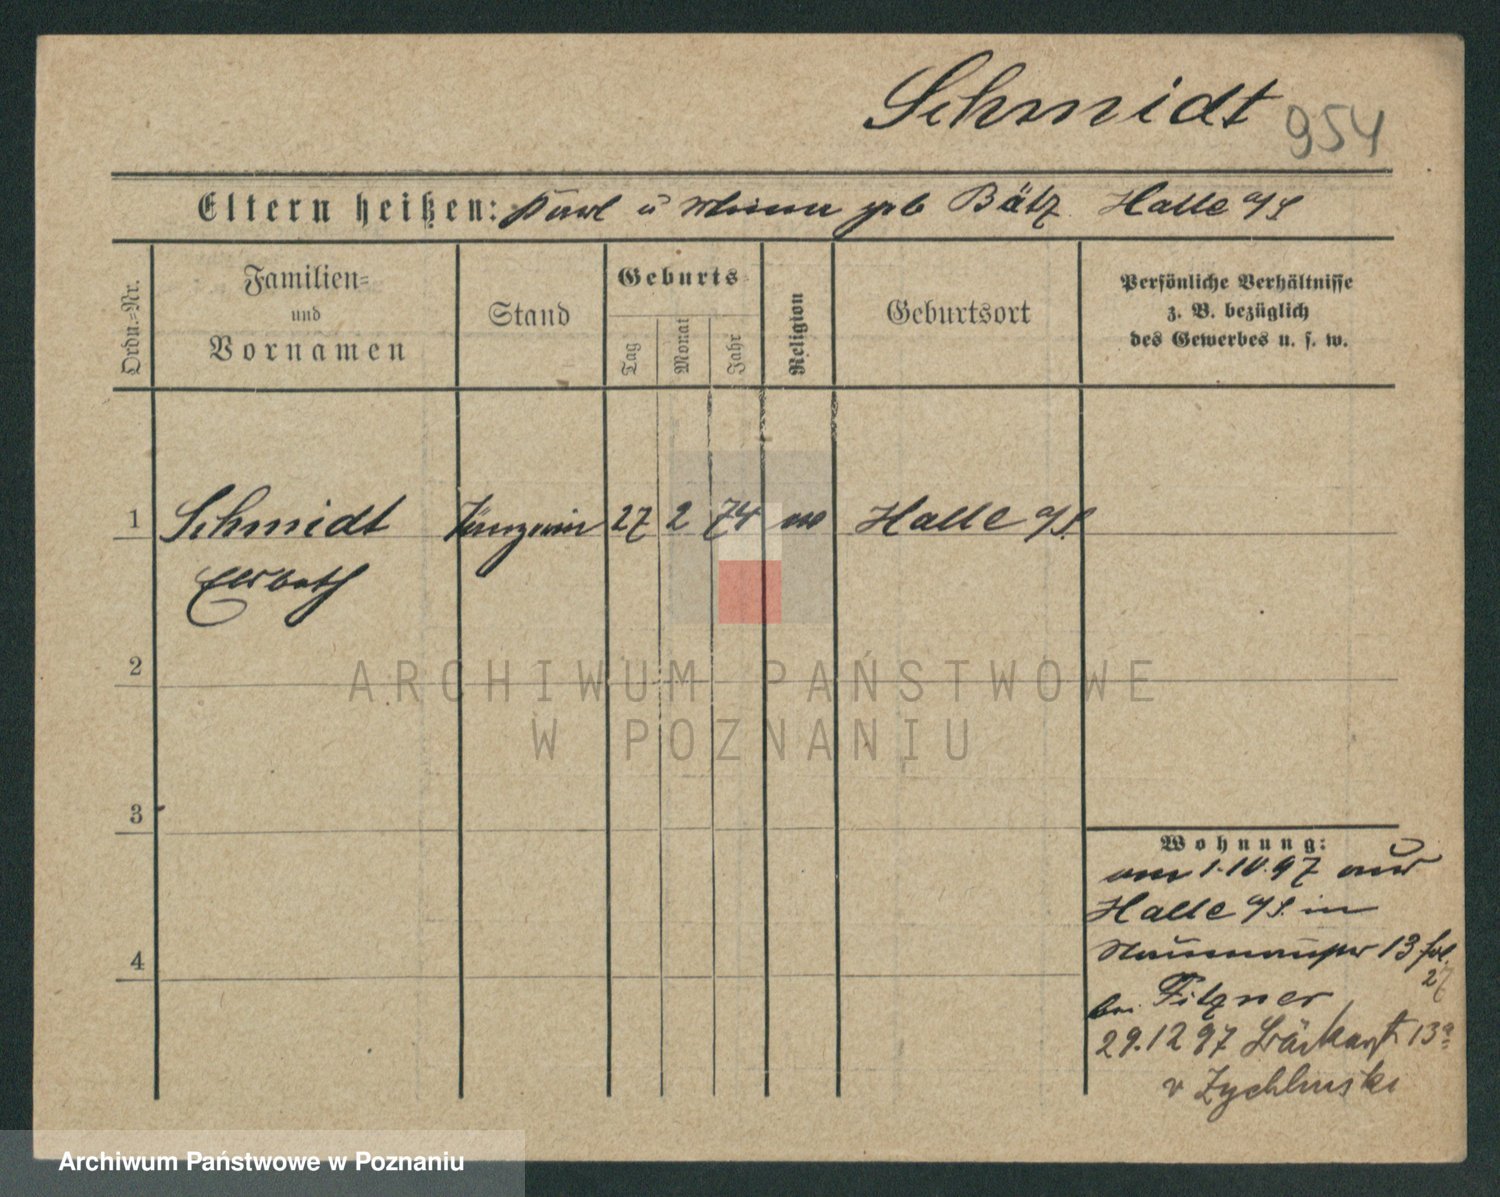 Schmidt 954
Eltern heißen: Karl u geb Bätz Halle a/S
Ordn.=Nr.
Familien=
und
Vornamen
Stand
Geburts
Tag
Monat
Jahr
Religion
Geburtsort
Persönliche Verhältnisse
z. B. bezüglich
des Gewerbes u. s. w.
1 Schmidt 27 2 74 Halle a/S.
Elsbeth
2
ARCHIWUM PAŃSTWOWE
W POZNANIU
3
4
Wohnung:
am 1.10.97 aus
Halle a/S. in
13
27
bei Fitzner
29.12 97 13a
v Zychlinski
Archiwum Państwowe w Poznaniu